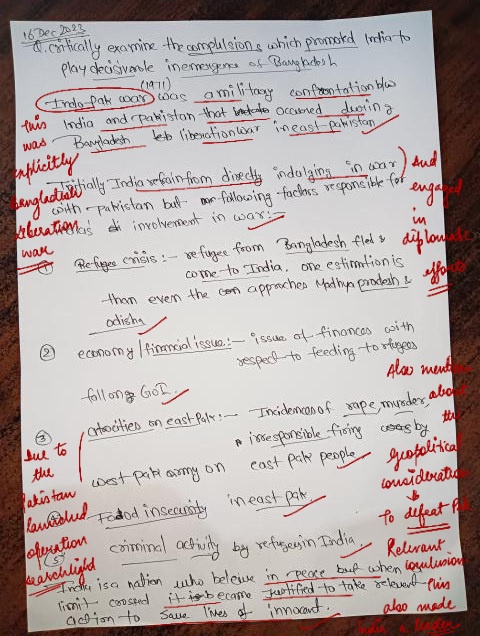 16 Dec 2022
Q. critically examine the compulsions which promoted India to
play decisive role in emergence of Bangladesh
(1971)
Indo-Pak war was a military confrontation b/w
India and Pakistan that occured during
Bangladesh liberation war in east-pakistan
This
was
explicitly
bangladesh
liberation
war
Initially India refrain from directly indulging in war
with Pakistan but following factors responsible for
involvement in war:-
And
engaged
in
diplomatic
efforts
① Refugee crisis:- refugee from Bangladesh fled &
come to India. one estimation is
than even the approaches Madhya pradesh &
odisha
② economy/financial issue:- issue of finances with
respect to feeding to refugees
fall on GoI.
Also mention
about
the
geopolitical
consideration
↓
To defeat Pak
③ atrocities on east Pak:- Incidences of rape, murder,
irresponsible firing by
west pak army on east Pak people
Due to
the
Pakistan
launched
operation
searchlight
④ Food insecurity in east pak.
⑤ criminal activity by refugees in India
India is a nation who beleive in peace but when
limit crossed it became justified to take relevent
action to save lives of innocent.
Relevant
conclusion
This
also made
India a leader